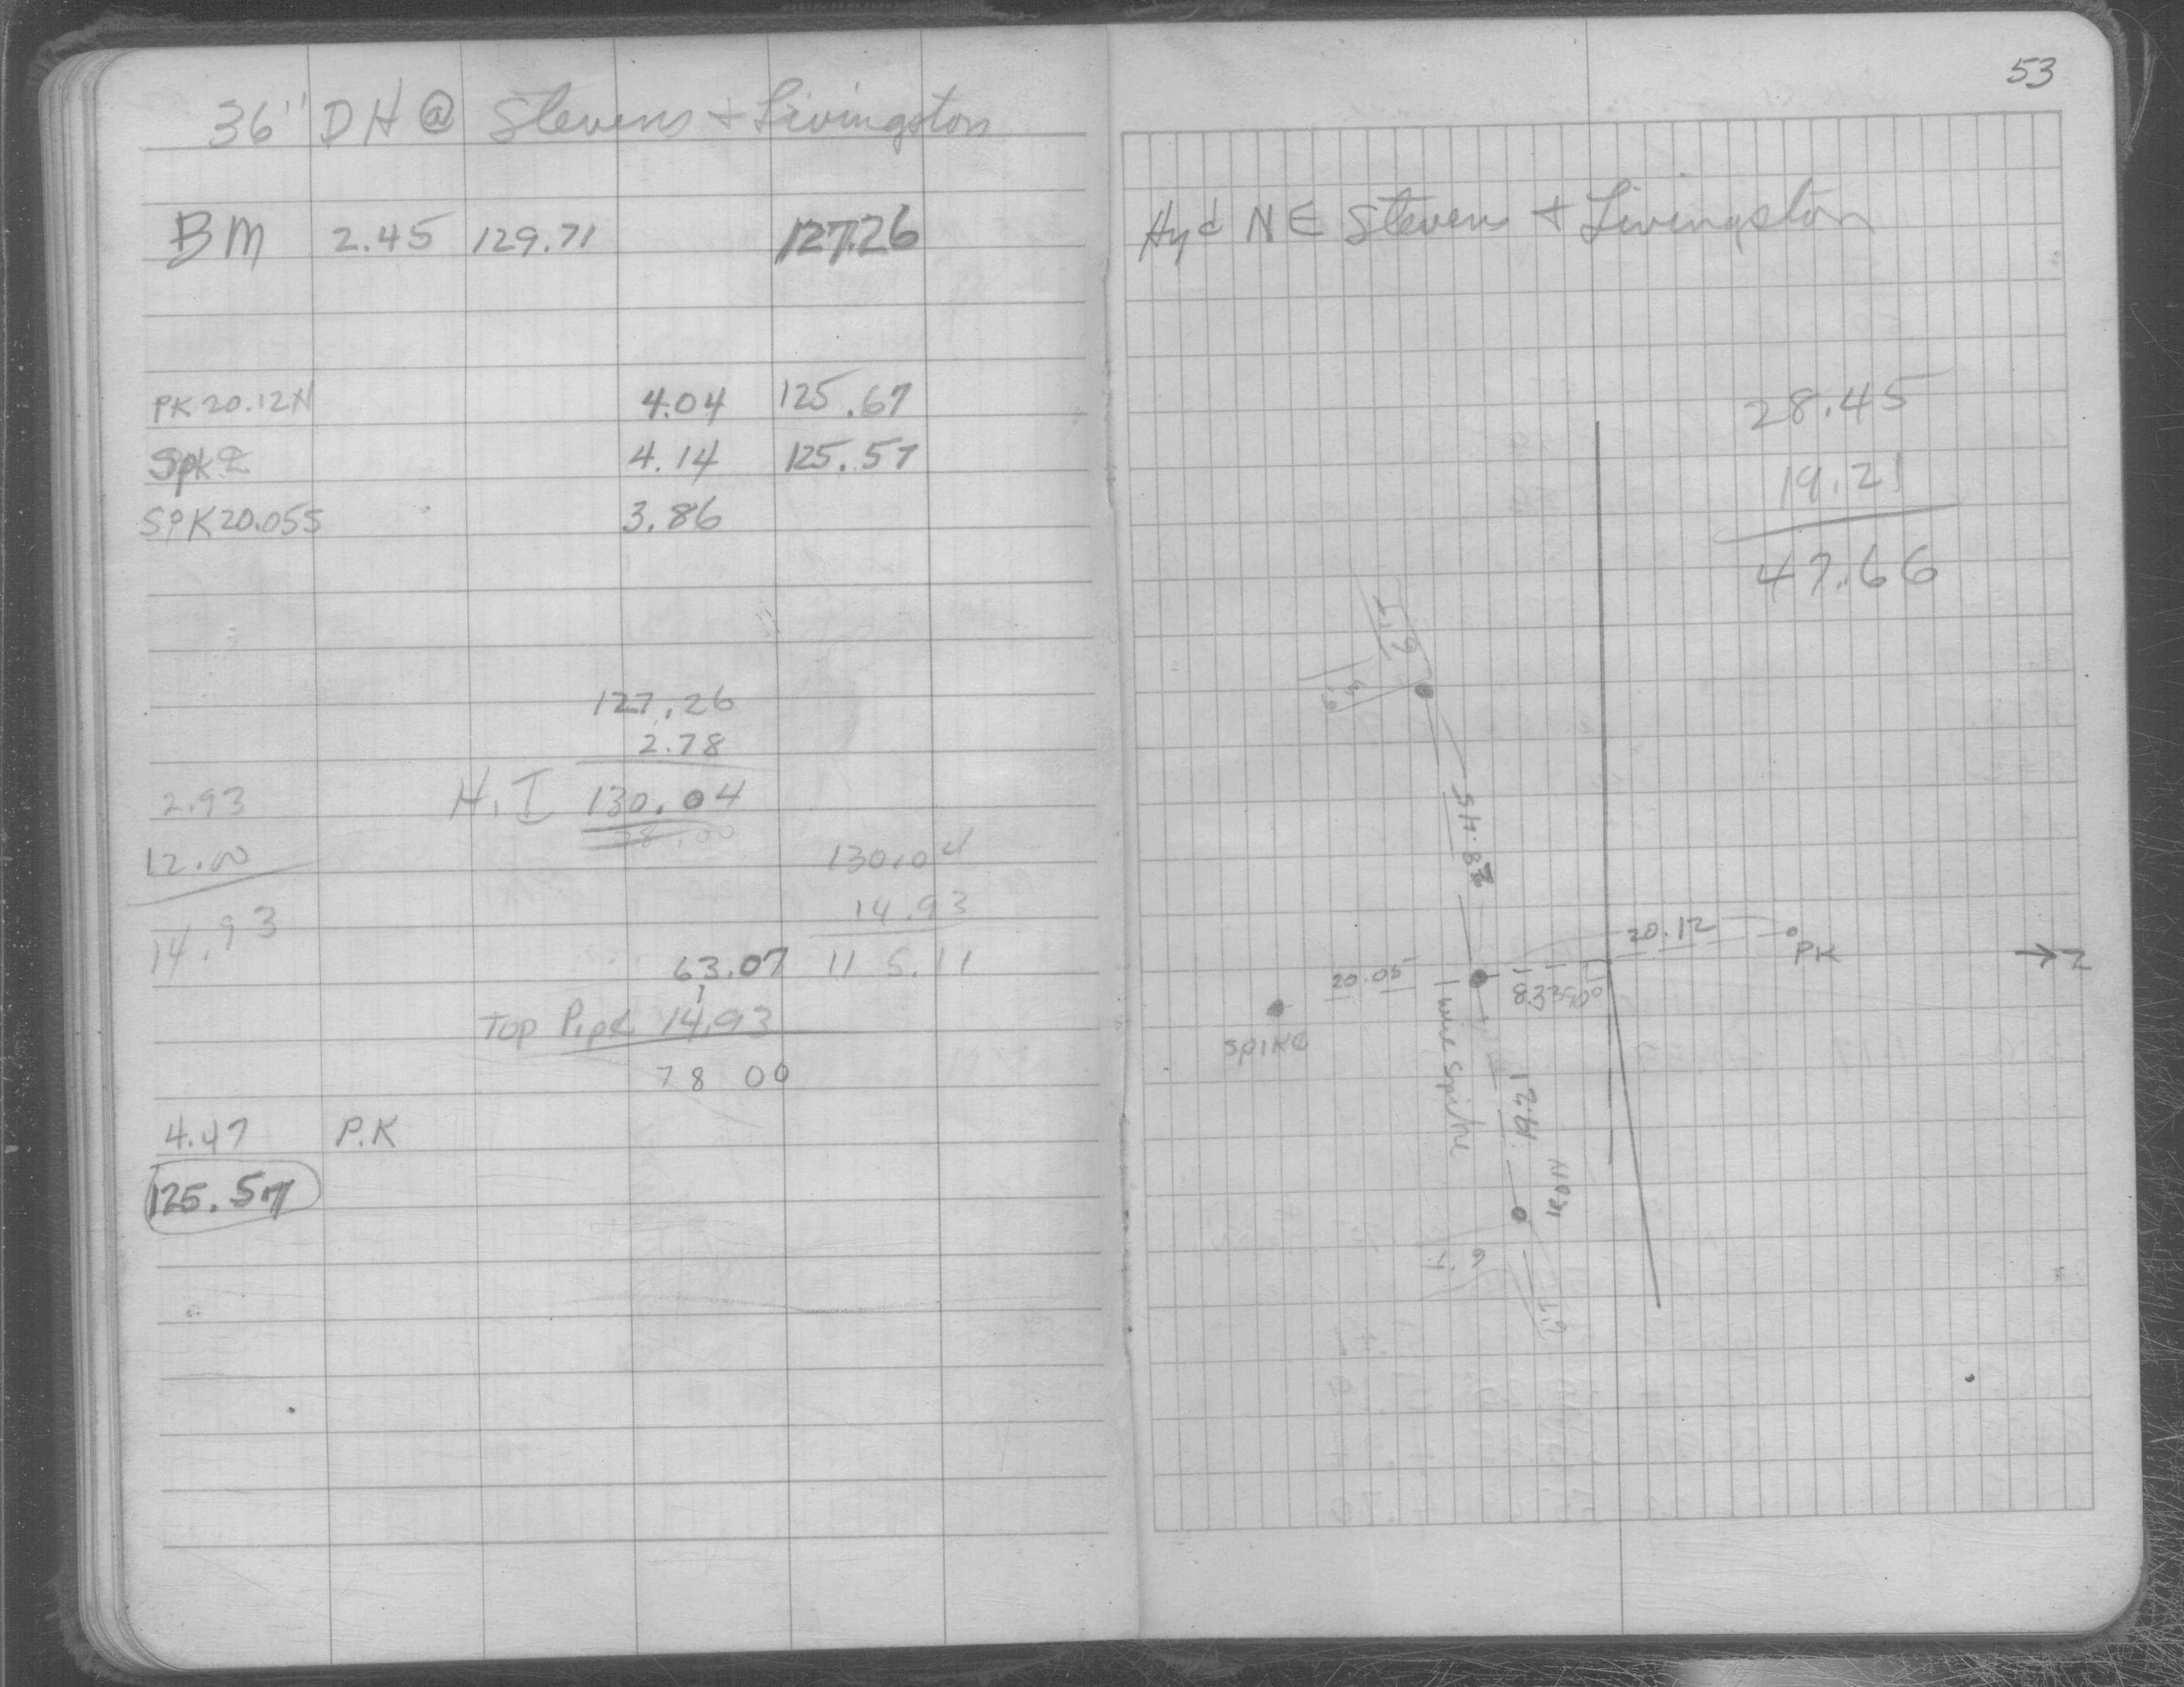 36" DH @ Stevens + Livingston
BM 2.45 129.71 127.26
PK 20.12N 4.04 125.67
Spk 4.14 125.57
SPK 20.05S 3.86
127.26
2.78
H.I 130.04
2.93
12.00
14.93
130.04
14.93
115.11
63.07
Top Pipe 14.93
78 00
4.47 P.K
125.57
53
Hyd NE Stevens + Livingston
28.45
19.21
47.66
28.45
20.12
PK
20.05
8.33
SPIKE
wire spike
19.21
IRON